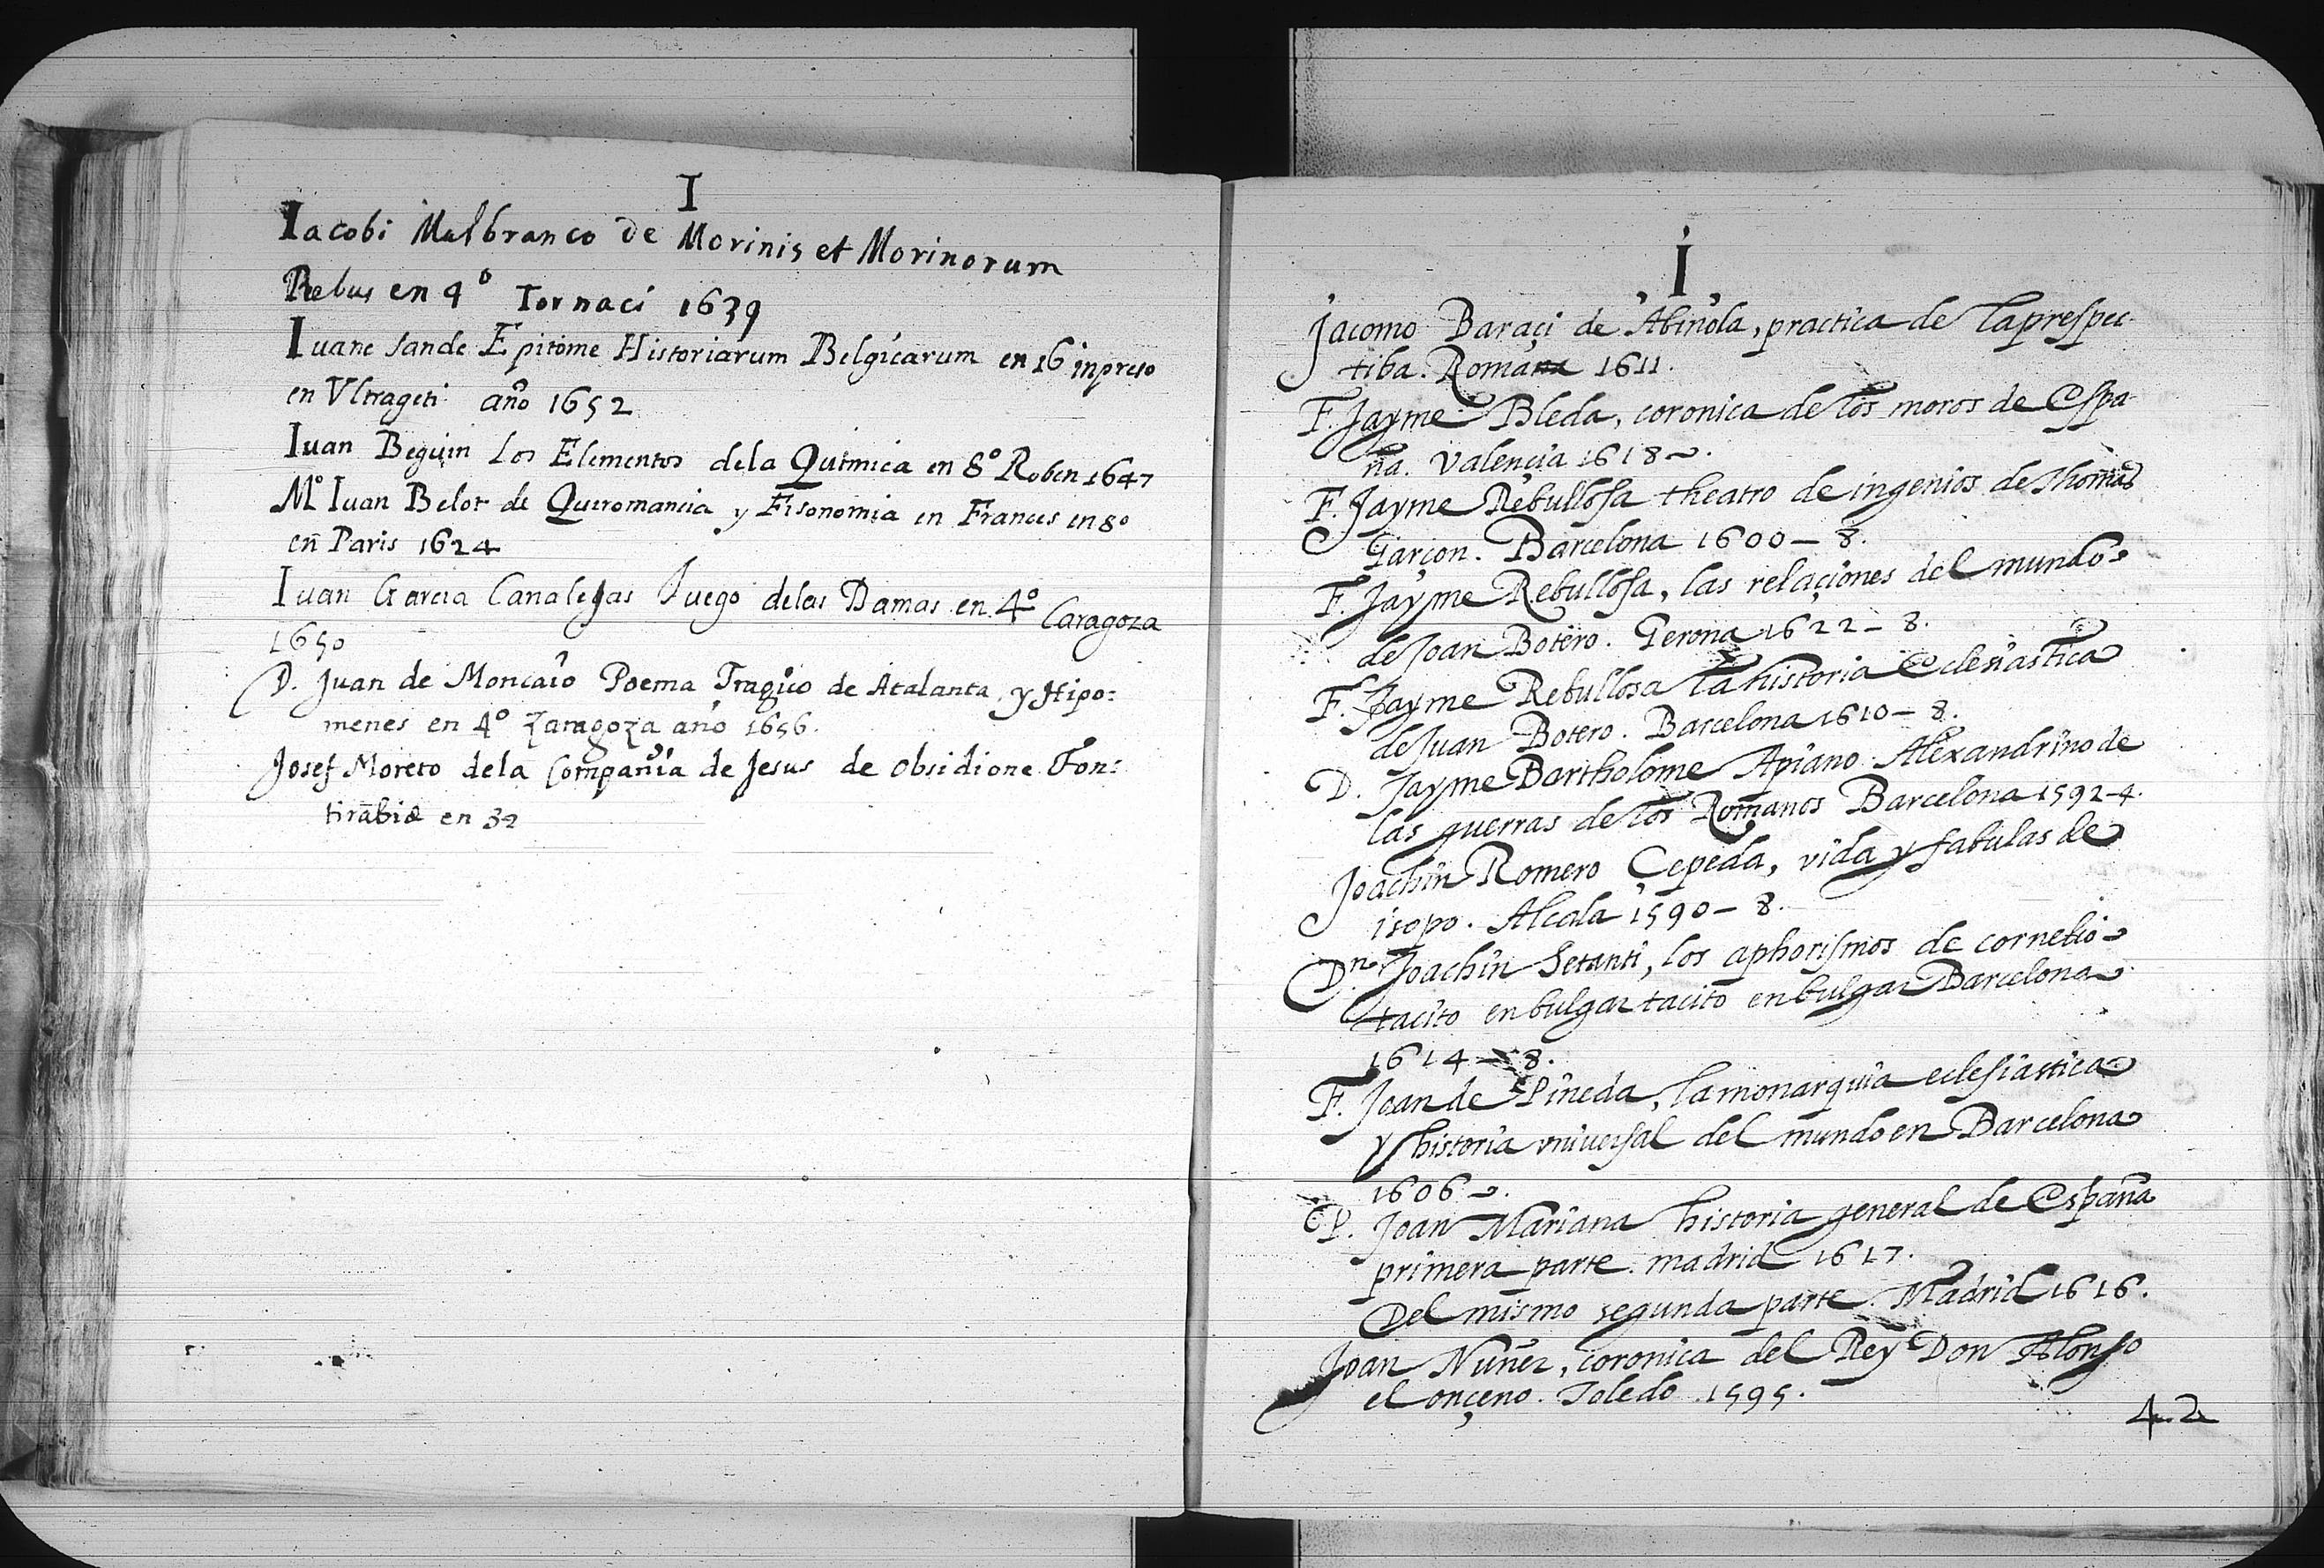 I
Iacobi Malbranco de Morinis et Morinorum
Rebus en 4º Tornaci 1639
Iuane Sande Epitome Historiarum Belgicarum en 16 inpreso
en Vltrageti año 1652
Iuan Beguin Los Elementos dela Quimica en 8º Roben 1647
Mº Iuan Belot de Quiromancia y Fisonomia en Frances en 8º
en Paris 1624
Iuan Garcia Canalejas Juego delas Damas en 4º Caragoza
1650
D. Juan de Moncaio Poema Tragico de Atalanta y Hipo:
menes en 4º Zaragoza año 1656.
Josef Moreto dela Compañia de Jesus de obsidione Fon:
tirabiæ en 32
J
Jacomo Baraçi de Abinola, practica de laprespec-
tiba. Romana 1611.
F. Jayme Bleda, coronica de los moros de Espa-
ña. Valençia 1618.
F. Jayme Rebullosa theatro de ingenios de Thomas
Garçon. Barcelona 1600 – 8.
F. Jayme Rebullosa, las relaçiones del mundo
de Joan Botero. Gerona 1622 – 8.
F. Jayme Rebullosa la historia Eclesiastica
de Juan Botero. Barcelona 1610 – 8.
D. Jayme Bartholome Apiano Alexandrino de
las guerras de los Romanos Barcelona 1592-4.
Joachin Romero Cepeda, vida y fabulas de
isopo. Alcala 1590 – 8.
Dn. Joachin Setanti, los aphorismos de cornelio
tacito en bulgar tacito en bulgar Barcelona
1614 – 8.
F. Joan de Pineda, la monarquia eclesiastica
y historia vniversal del mundo en Barcelona
1606.
P. Joan Mariana historia general de España
primera parte. madrid 1617.
Del mismo segunda parte. Madrid 1616.
Joan Nuñez, coronica del Rey Don Alonso
el onçeno. Toledo. 1595.
42